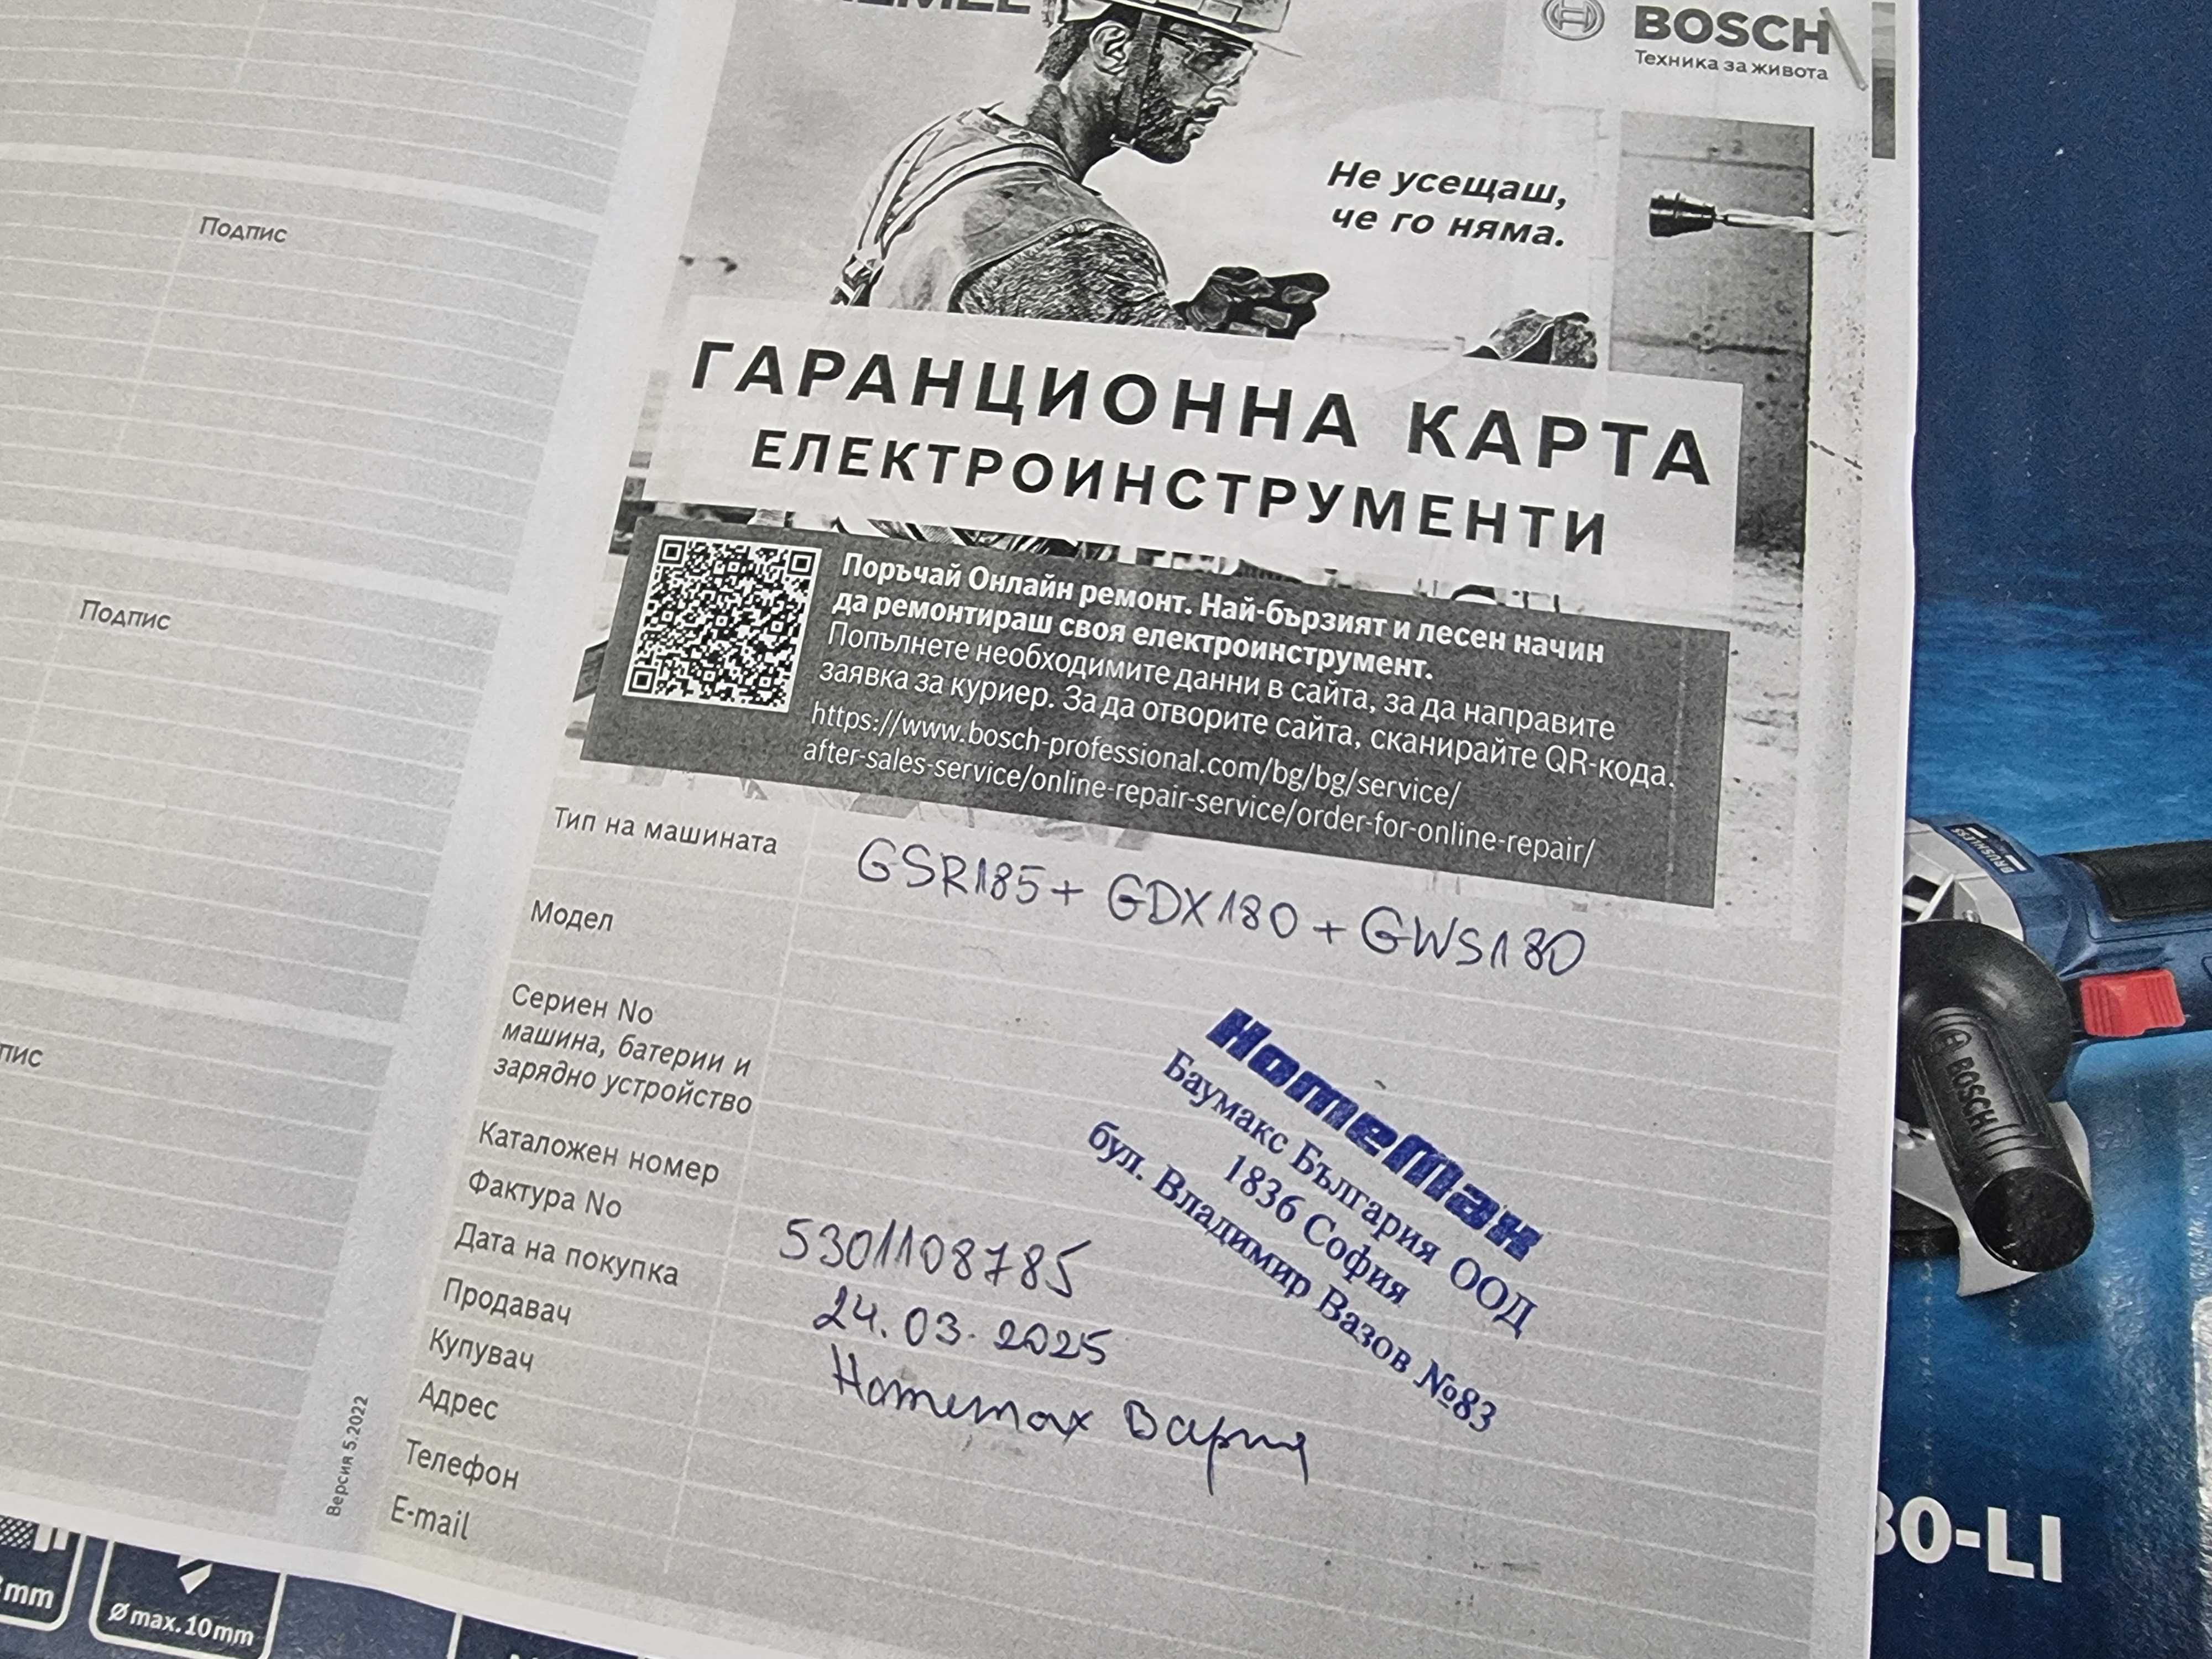 BOSCH
Техника за живота
Не усещаш,
че го няма.
ГАРАНЦИОННА КАРТА
ЕЛЕКТРОИНСТРУМЕНТИ
Поръчай Онлайн ремонт. Най-бързият и лесен начин
да ремонтираш своя електроинструмент.
Попълнете необходимите данни в сайта, за да направите
заявка за куриер. За да отворите сайта, сканирайте QR-кода.
https://www.bosch-professional.com/bg/bg/service/
after-sales-service/online-repair-service/order-for-online-repair/
Подпис
Подпис
Тип на машината
GSR185+ GDX180 + GWS180
Модел
Сериен No
машина, батерии и
зарядно устройство
Каталожен номер
Фактура No
5301108785
Дата на покупка
24.03.2025
Продавач
Homemax Варна
Купувач
Адрес
Телефон
E-mail
HomeMax
Баумакс България ООД
1836 София
бул. Владимир Вазов №83
Версия 5.2022
BRUSHLESS
BOSCH
30-LI
mm
Ø max. 10 mm